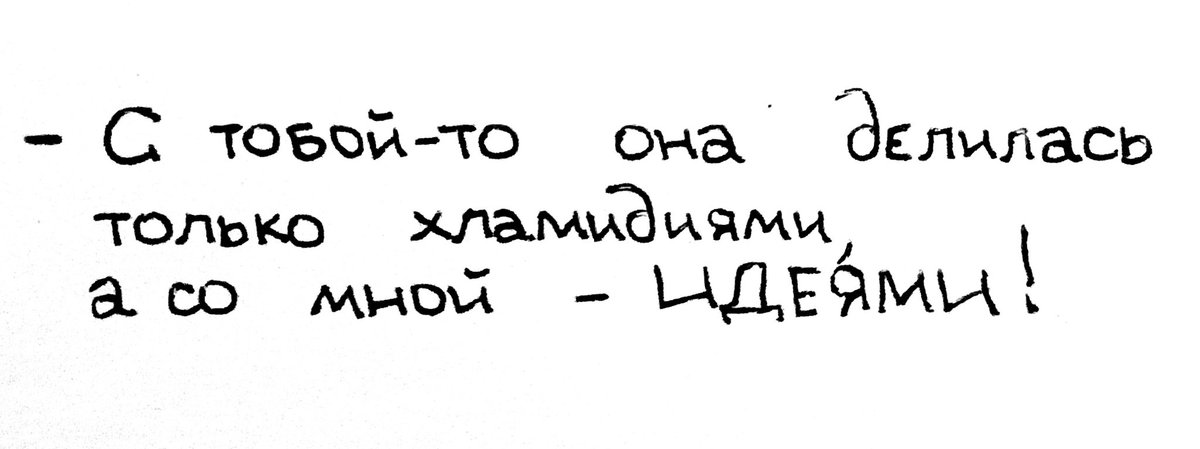 - С тобой-то она делилась
только хламидиями,
а со мной - ИДЕЯ́МИ!